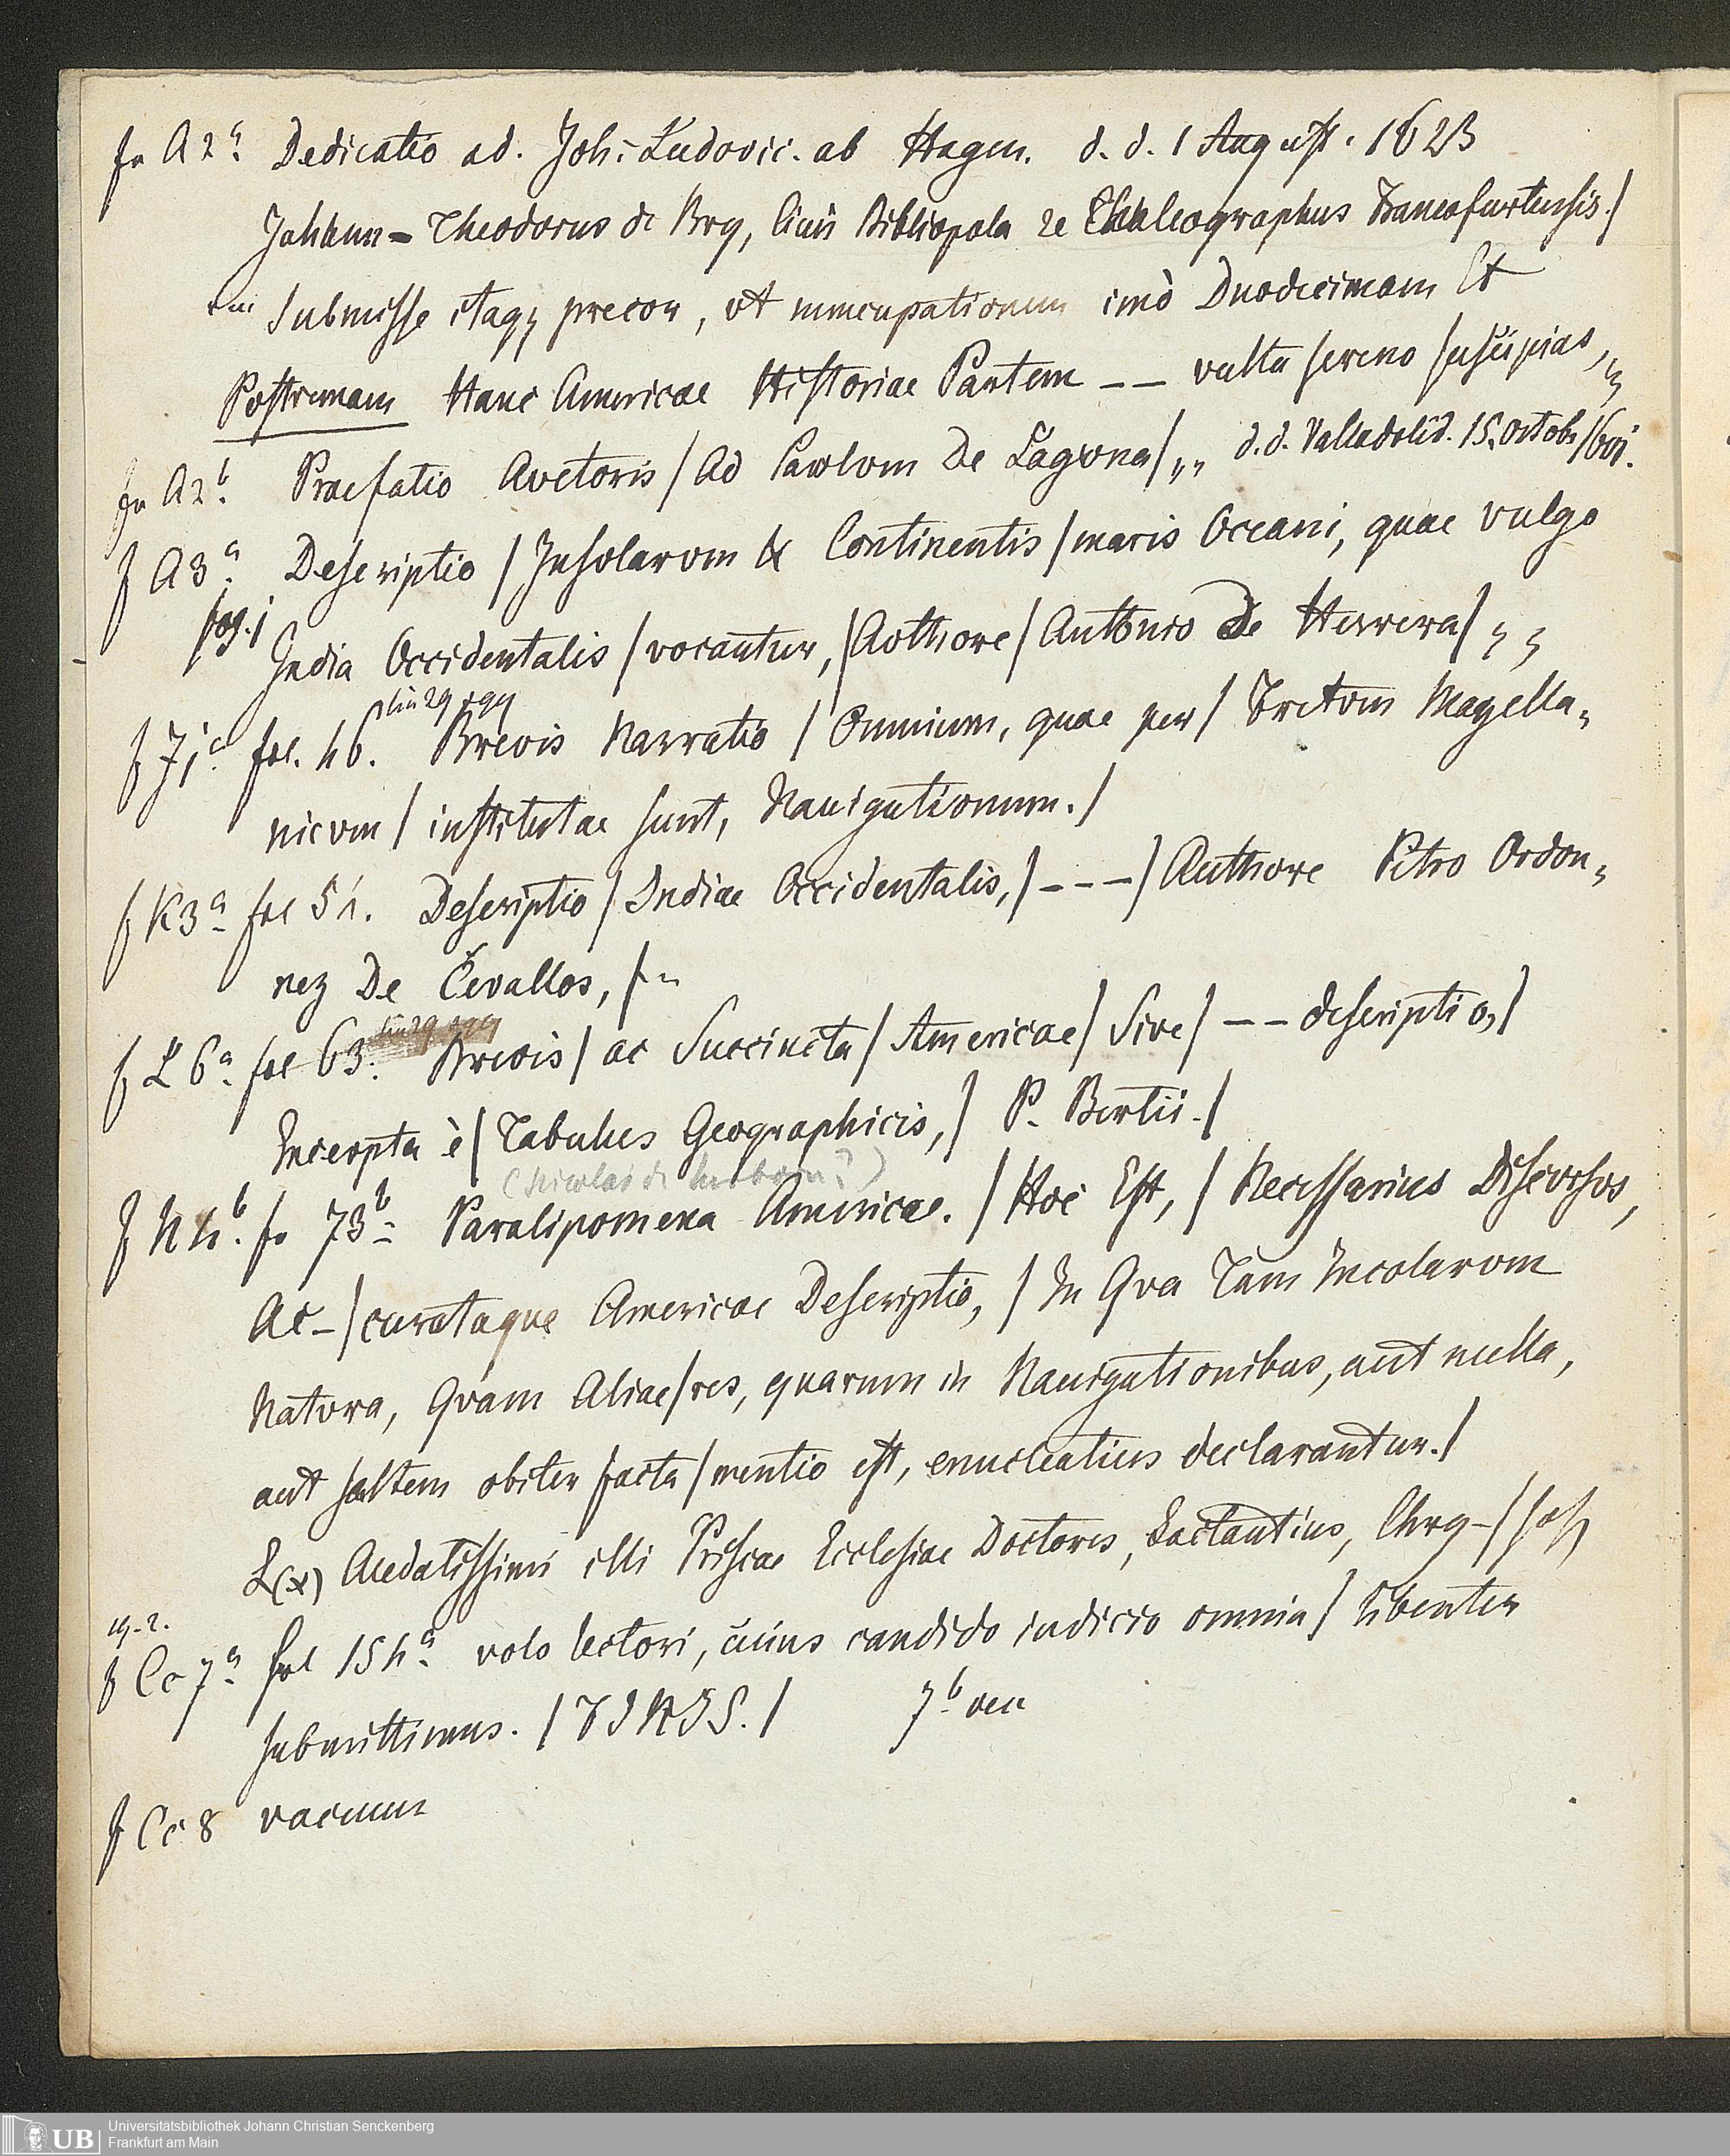 fo A 2ᵃ. Dedicatio ad. Joh: Ludovic. ab Hagen. d. d. 1 August. 1623
Johann = Theodorus de Bry, Ciuis Bibliopola & Chalcographus Francofurtensis. /
Submisse itaqȝ precor, vt nuncupationem imò Duodecimam Et
Postremam Hanc Americae Historiae Partem – – vultu sereno suscipias,
fo A2ᵇ. Praefatio Avctoris / Ad Pavlvm De Lagvna / „ d. d. Valladolid. 15. Octobr 1601.
f A3ᵃ. Descriptio / Insolarvm & Continentis / maris Oceani, quae vulgo
pag. 1
India Occidentalis / vocantur, / Avthore / Antonio De Herrera /
lin 29 sqq
f J1ᵃ fol. 46. Brevis Narratio / Omnium, quae per / Fretvm Magella-
nicvm / institutae sunt, Nauigationum. /
f K3ᵃ fol 54. Descriptio / Indiae Occidentalis, / – – – / Authore Petro Ordon-
nez De Cevallos, /
lin 29 sqq
f L 6ᵃ. fol 63. Brevis / ac Succincta / Americae / Sive / – – descriptio, /
Excerpta è / Tabulis Geographicis, / P. Bertii. /
(Nicolas de ?)
f N 4ᵇ. fo 73ᵇ Paralipomena Americae. / Hoc Est, / Necessarius Discvrsvs,
Ac- / curataque Americae Descriptio, / In Qva Tam Incolarvm
Natvra, Qvam Aliae / res, quarum in Nauigationibus, aut nulla,
aut saltem obiter facta / mentio est, enucleatius declarantur. /
L(x) Audatissimi illi Priscae Ecclesiae Doctores, Lactantius, Chry- / sost
f Cc 7ᵃ fol 154ᵃ. volo lectori, cuius candido iudicio omnia / libenter
submittimus. / FINIS. / 7ᵇ vac
f Cc 8 vacuum
UB Universitätsbibliothek Johann Christian Senckenberg
Frankfurt am Main